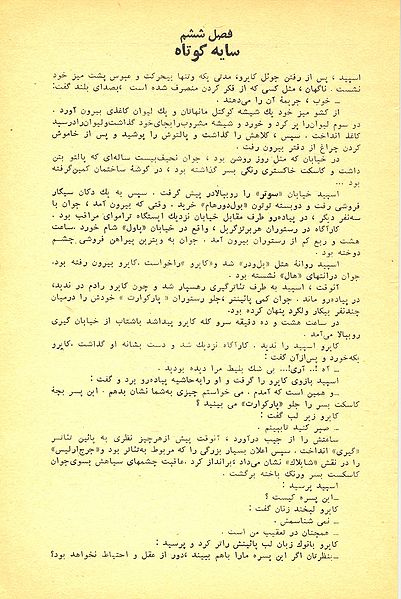 فصل ششم
سایه کوتاه
اسپید ، پس از رفتن جوئل کایرو، مدتی یکه وتنها بیحرکت و عبوس پشت میز خود
نشست . ناگهان ، مثل کسی که از فکر کردن منصرف شده است ،بصدای بلند گفت:
ــ خوب ، جریمهٔ آن را می‌دهند .
از کشو میز خود یك شیشه کوکتل مانهاتان و یك لیوان کاغذی بیرون آورد .
دو سوم لیوان‌را پر کرد و خورد و شیشه مشروب‌رابجای‌خود گذاشت‌ولیوان‌رادرسبد
کاغذ انداخت . سپس ، کلاهش را گذاشت و پالتوش را پوشید و پس از خاموش
کردن چراغ از دفتر بیرون رفت .
در خیابان که مثل روز روشن بود ، جوان نحیف‌بیست ساله‌ای که پالتو بتن
داشت و کاسکت خاکستری رنگی بسر گذاشته بود ، در گوشهٔ ساختمان کمین‌گرفته
بود ...
اسپید خیابان «سوتر» را روببالادر پیش گرفت . سپس به یك دکان سیگار
فروشی رفت و دوبسته توتون «بول‌دورهام» خرید . وقتی که بیرون آمد ، جوان با
سه‌نفر دیگر ، در پیاده‌رو طرف مقابل خیابان نزدیك ایستگاه تراموای مراقب بود .
کارآگاه در رستوران هربرتزگریل ، واقع در خیابان «پاول» شام خورد .ساعت
هشت و ربع کم از رستوران بیرون آمد . جوان به ویترین پیراهن فروشی چشم
دوخته بود .
اسپید روانهٔ هتل «بل‌ودر» شد و«کایرو» راخواست .کایرو بیرون رفته بود.
جوان درانتهای «هال» نشسته بود .
آنوقت ، اسپید به طرف تئاترگیری رهسپار شد و چون کایرو رادم در ندید،
در پیاده‌رو ماند . جوان کمی پائینتر ،جلو رستوران « پارکوارت » خودش را درمیان
چندنفر بیکار ولگرد پنهان کرده بود.
در ساعت هشت و ده دقیقه سرو کله کایرو پیداشد باشتاب از خیابان گیری
روببالا می‌آمد .
کایرو اسپید را ندید . کارآگاه نزدیك شد و دست بشانه او گذاشت .کایرو
یکه‌خورد و پس‌ازآن گفت :
ــ آه !.. آری!... بی شك بلیط مرا دیده بودید .
اسپید بازوی کایرو را گرفت و او رابه‌حاشیه پیاده‌رو برد و گفت :
ــ و همین است که آمدم . می خواستم چیزی به‌شما نشان بدهم . این پسر بچهٔ
کاسکت بسر را جلو «پارکوارت» می بینید ؟
کایرو زیر لب گفت :
ــ صبر کنید تابینم .
ساعتش را از جیب درآورد ، آنوقت پیش ازهرچیز نظری به پائین تئاتر
«گیری» انداخت . سپس اعلان بسیار بزرگی را که مربوط به‌تئاتر بود و«جرج‌آرلیس»
را در نقش «شایلاك» نشان می‌داد ،برانداز کرد .عاقبت چشمهای سیاهش بسوی‌جوان
کاسکت بسر ورنگ باخته برگشت .
اسپید پرسید :
ــ این پسره کیست ؟
کایرو لبخند زنان گفت :
ــ نمی شناسمش .
ــ همچنان در تعقیب من است .
کایرو بانوك زبان لب پائینش راتر کرد و پرسید :
ــ بنظرتان اگر این پسره مارا باهم ببیند ،دور از عقل و احتیاط نخواهد بود؟